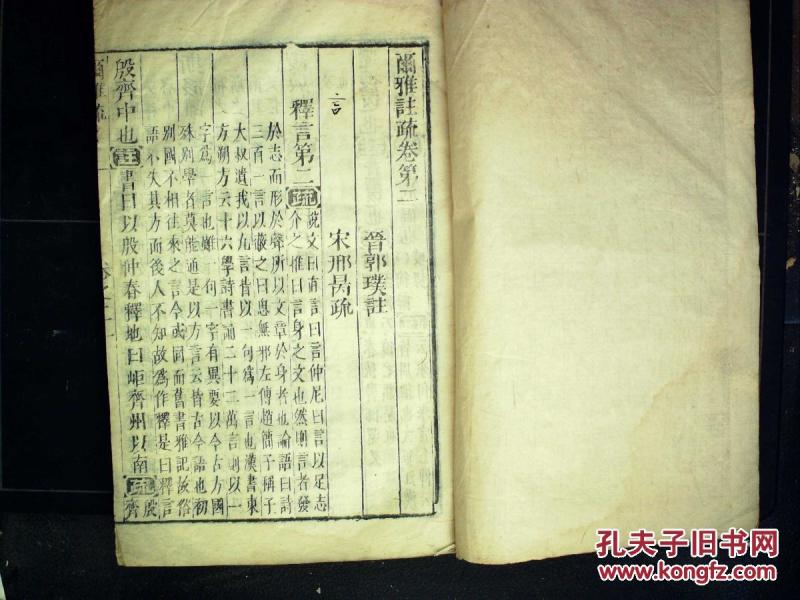 爾雅註疏卷第二
晉郭璞註
宋邢昺疏
言
釋言第二疏說文曰直言曰言仲尼曰言以足志
介之推曰言身之文也然則言者發
於志而形於聲所以文章於身者也論語曰詩
三百一言以蔽之曰思無邪左傳趙簡子稱子
大叔遺我以九言皆以一句爲一言也漢書東
方朔云十六學詩書誦二十二萬言則以一
字爲一言也雖一句一字有異要以今古方國
殊別學者莫能通是以方言云皆古今語也初
別國不相往來之言今或同而舊書雅記故俗
語不失其方而後人不知故爲作釋是曰釋言
殷齊中也註書曰以殷仲春釋地曰岠齊州以南疏殷
齊
爾雅疏
孔夫子旧书网
www.kongfz.com